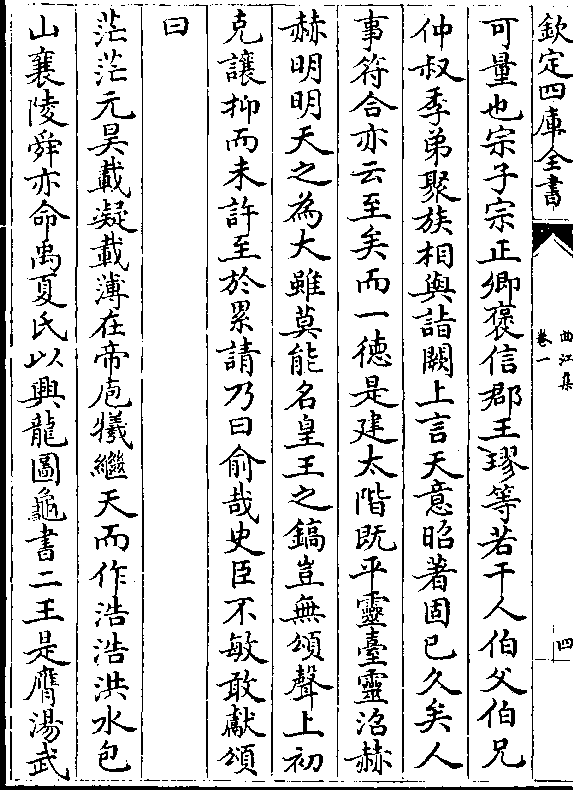 欽定四庫全書
曲江集
卷一
四
可量也宗子宗正卿褒信郡王璆等若干人伯父伯兄
仲叔季弟聚族相與詣闕上言天意昭著固已久矣人
事符合亦云至矣而一德是建太階既平靈臺靈沼赫
赫明明天之為大雖莫能名皇王之鎬豈無頌聲上初
克讓抑而未許至於累請乃曰俞哉史臣不敏敢獻頌
曰
茫茫元昊載凝載薄在帝庖犧繼天而作浩浩洪水包
山襄陵舜亦命禹夏氏以興龍圖龜書二王是膺湯武